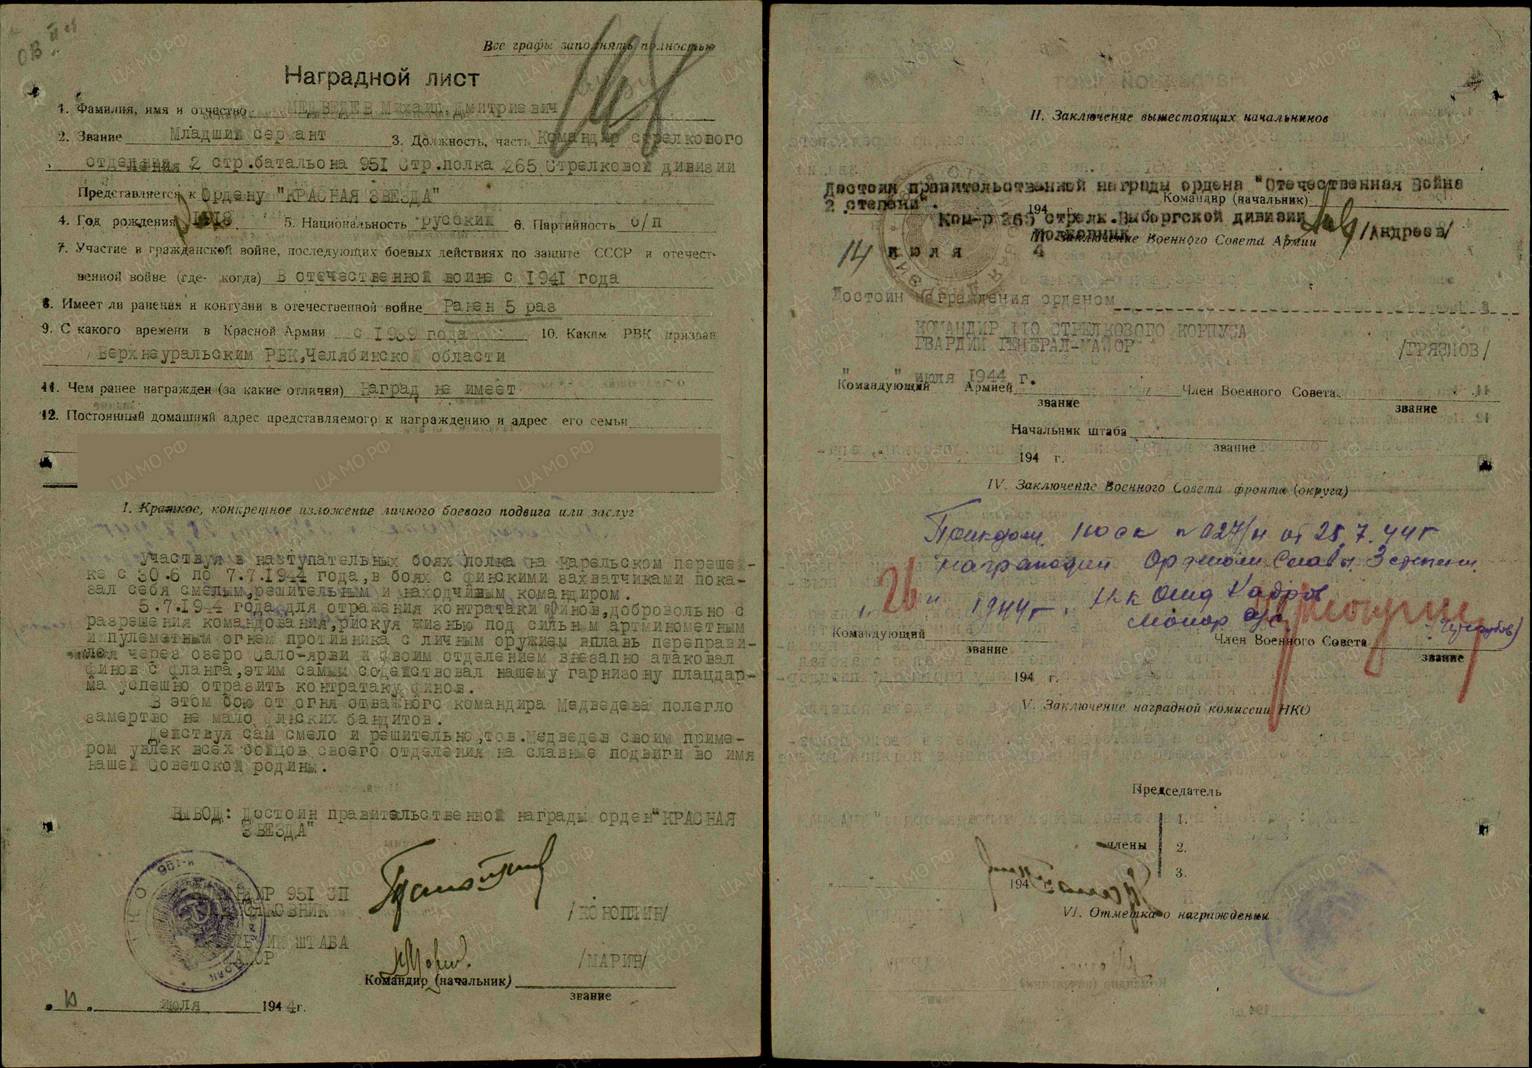 Все графы заполнять полностью
Наградной лист
1. Фамилия, имя и отчество МЕДВЕДЕВ Михаил Дмитриевич
2. Звание Младший сержант 3. Должность, часть Командир стрелкового
отделения 2 стр.батальона 951 Стр.полка 265 Стрелковой дивизии
Представляется к Ордену "КРАСНАЯ ЗВЕЗДА"
4. Год рождения 1918 5. Национальность русский 6. Партийность б/п
7. Участие в гражданской войне, последующих боевых действиях по защите СССР и отечест-
венной войне (где, когда) В отечественной войне с 1941 года
8. Имеет ли ранения и контузии в отечественной войне Ранен 5 раз
9. С какого времени в Красной Армии с 1939 года 10. Каким РВК призван
Верхнеуральским РВК, Челябинской области
11. Чем ранее награжден (за какие отличия) Наград не имеет
12. Постоянный домашний адрес представляемого к награждению и адрес его семьи
I. Краткое, конкретное изложение личного боевого подвига или заслуг
Участвуя в наступательных боях полка на Карельском переше-
йке с 30.6 по 7.7.1944 года, в боях с финскими захватчиками пока-
зал себя смелым, решительным и находчивым командиром.
5.7.1944 года для отражения контратаки финов, добровольно с
разрешения командования, рискуя жизнью под сильным артминометным
и пулеметным огнем противника с личным оружием вплавь переправи-
лся через озеро Вало-ярви и своим отделением внезапно атаковал
финов с фланга, этим самым содействовал нашему гарнизону плацдар-
ма успешно отразить контратаку финов.
В этом бою от огня отважного командира Медведева полегло
замертво не мало финских бандитов.
Действуя сам смело и решительно, тов. Медведев своим приме-
ром увлек всех бойцов своего отделения на славные подвиги во имя
нашей Советской родины.
ВЫВОД: Достоин правительственной награды орден "КРАСНАЯ
ЗВЕЗДА"
951 СП
/КОНОПКИН/
ШТАБА
/МАРИН/
Командир (начальник)
звание
10 июля 1944 г.
II. Заключение вышестоящих начальников
Достоин правительственной награды ордена "Отечественная Война
2 степени".
Командир (начальник)
194 г.
Ком-р 265 стрелк. Выборгской дивизии
Полковник /Андреев/
III. Заключение Военного Совета Армии
14 июля 4
Достоин награждения орденом
КОМАНДИР 110 СТРЕЛКОВОГО КОРПУСА
ГВАРДИИ ГЕНЕРАЛ-МАЙОР /ГРЯЗНОВ/
" " июля 1944 г.
Командующий Армией Член Военного Совета
звание звание
Начальник штаба
звание
194 г.
IV. Заключение Военного Совета фронта (округа)
от 25.7.44г
награжден Орденом Славы 3 степени
"26" 1944г. Н-к Отд Кадров
майор
Командующий Член Военного Совета
звание звание
194 г.
V. Заключение наградной комиссии НКО
Председатель
члены
1.
2.
3.
194
VI. Отметка о награждении